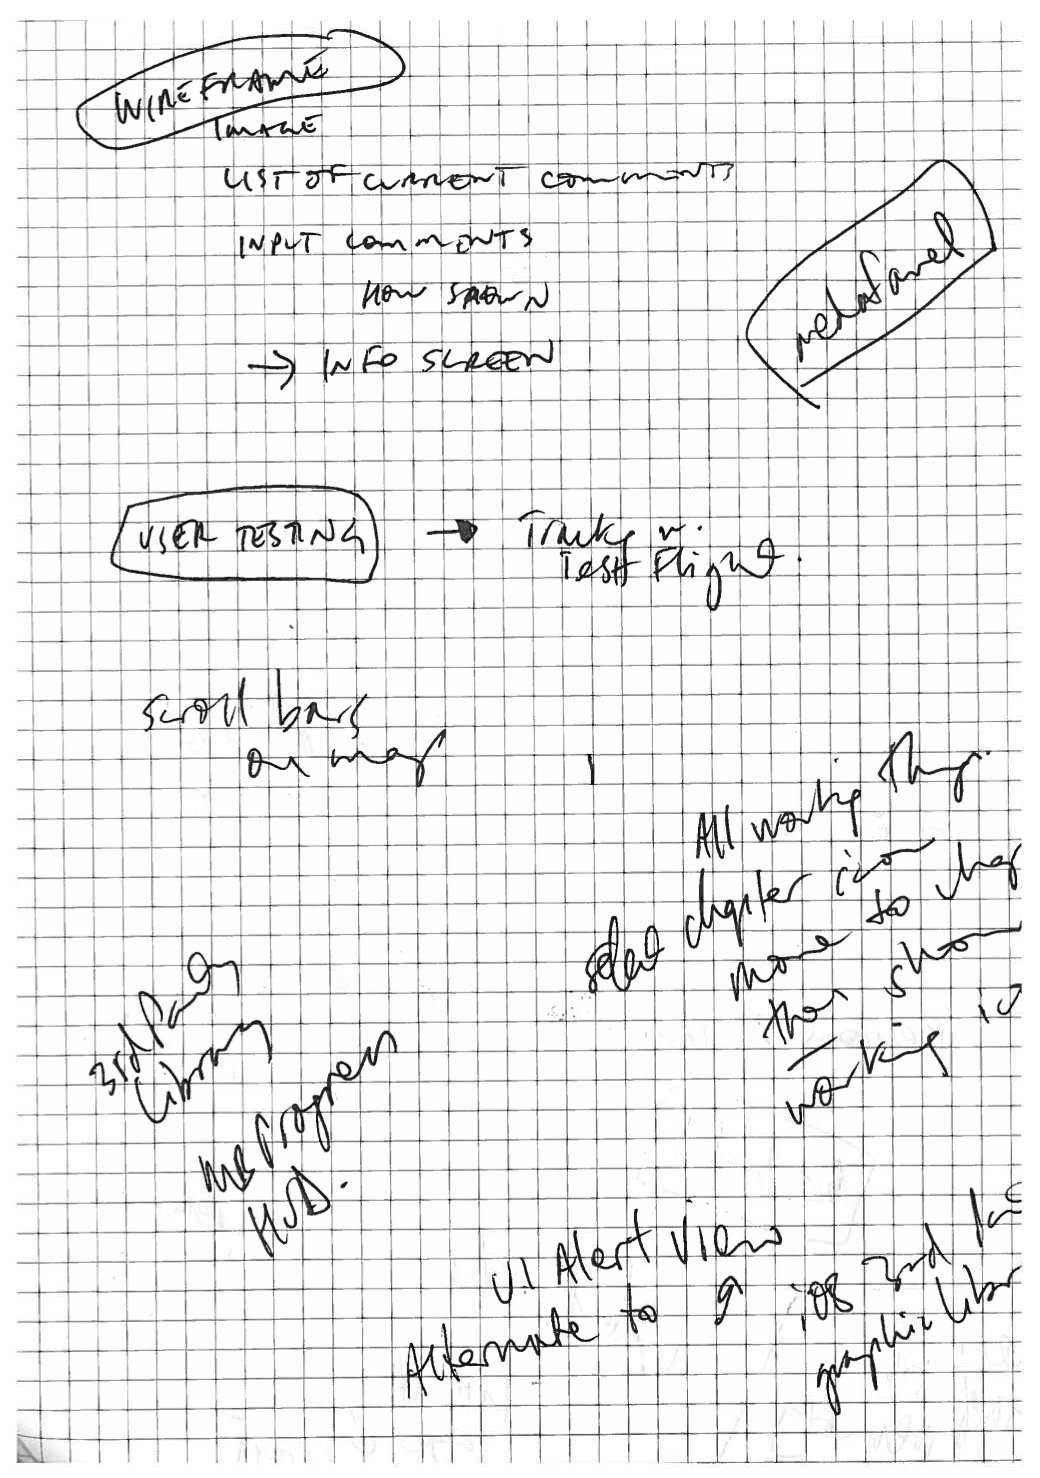 WIREFRAME
IMAGE
LIST OF CURRENT COMMENTS
INPUT COMMENTS
HOW SHOWN
→ INFO SCREEN
USER TESTING → Tracks w.
Test Flight.
scroll bars
on
All working things.
select chapter icon
move to
then show
working
3rd Party
Library
MB Progress
HUD.
UI Alert View
Alternate to ↑
iOS 3rd
graphic